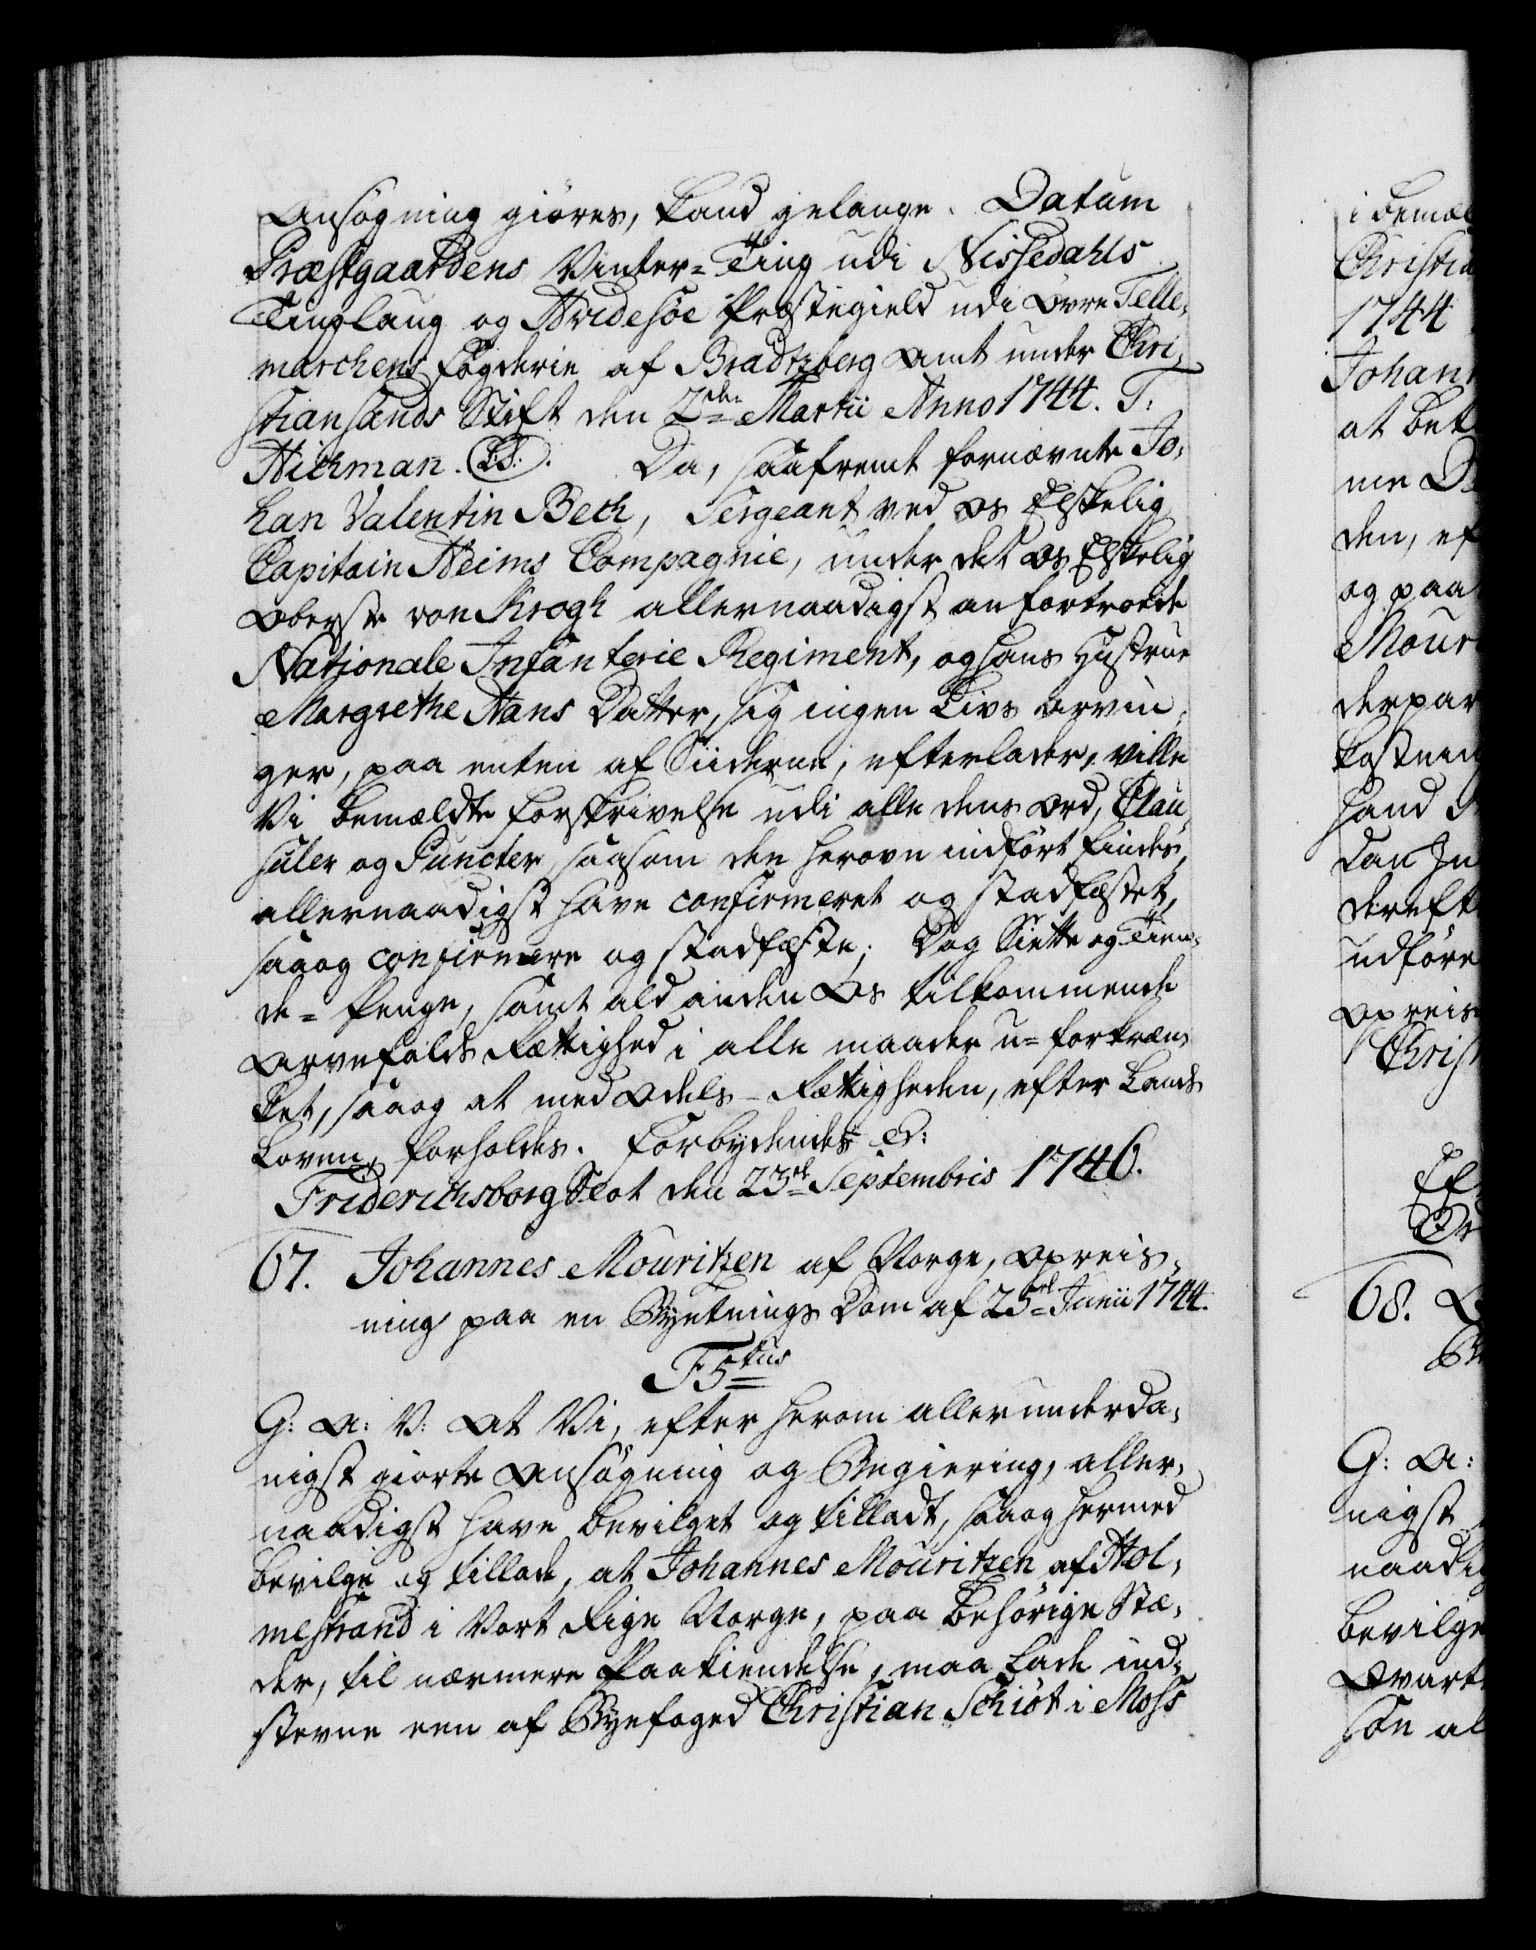 Ansøgning giöres, kand gelange. Datum
Præstgaardens Vinter-Ting udi Nissedahls
Tinglaug og Hvidesöe Præstegield udi Øvre Telle-
marchens Fogderie af Bradtzberg Amt under Chri-
stiansands Stift den 2den Martii Anno 1744. T:
Wichman. (L.S.). Da, saafremt fornævnte Jo-
han Valentin Bech, Sergeant ved Os Elskelig
Capitain Heims Compagnie, under det Os Elskelig
Oberste von Krogh allernaadigst anfortroede
Nationale Infanterie Regiment, og hans Hustrue
Margrethe Hans Datter, sig ingen Livs Arvin-
ger, paa enten af Siiderne, efterlader, ville
Vi bemældte Forskrivelse udi alle dens Ord, Clau-
suler og Puncter, saasom den herovn indfört findes,
allernaadigst have confirmeret og stadfæstet,
saa og confirmere og stadfæste; Dog Siette og Tien-
de-Penge, samt ald anden Os tilkommende
Arvefalds Rettighed i alle maader u-forkræn-
ket, saa og at med Odels-Rettigheden, efter Lands
Loven, forholdes. Forbydendes etc:
Friderichsborg Slot den 23de Septembris 1746.
67. Johannes Mouritzen af Norge, Opreis-
ning paa en Bytings Dom af 25de Junii 1744.
F5tus
G: A: V: At Vi, efter herom allerunderda-
nigst giorte Ansögning og Begiering, aller-
naadigst have bevilget og tilladt, saa og hermed
bevilge og tillade, at Johannes Mouritzen af Hol-
mestrand i Vort Rige Norge, paa behörige Stæ-
der, til nærmere Paakiendelse, maa lade ind-
stevne een af Byefoged Christian Schiöt i Moss
i bemæl
Christia
1744
Johann
at bet
me D
den, ef
og paa
Mour
derpaa
kostnin
hand
dan In
dereft
udföre
Opreis
Christ
68.
G: A:
nigst
naadig
bevilge
Qvart
sön al